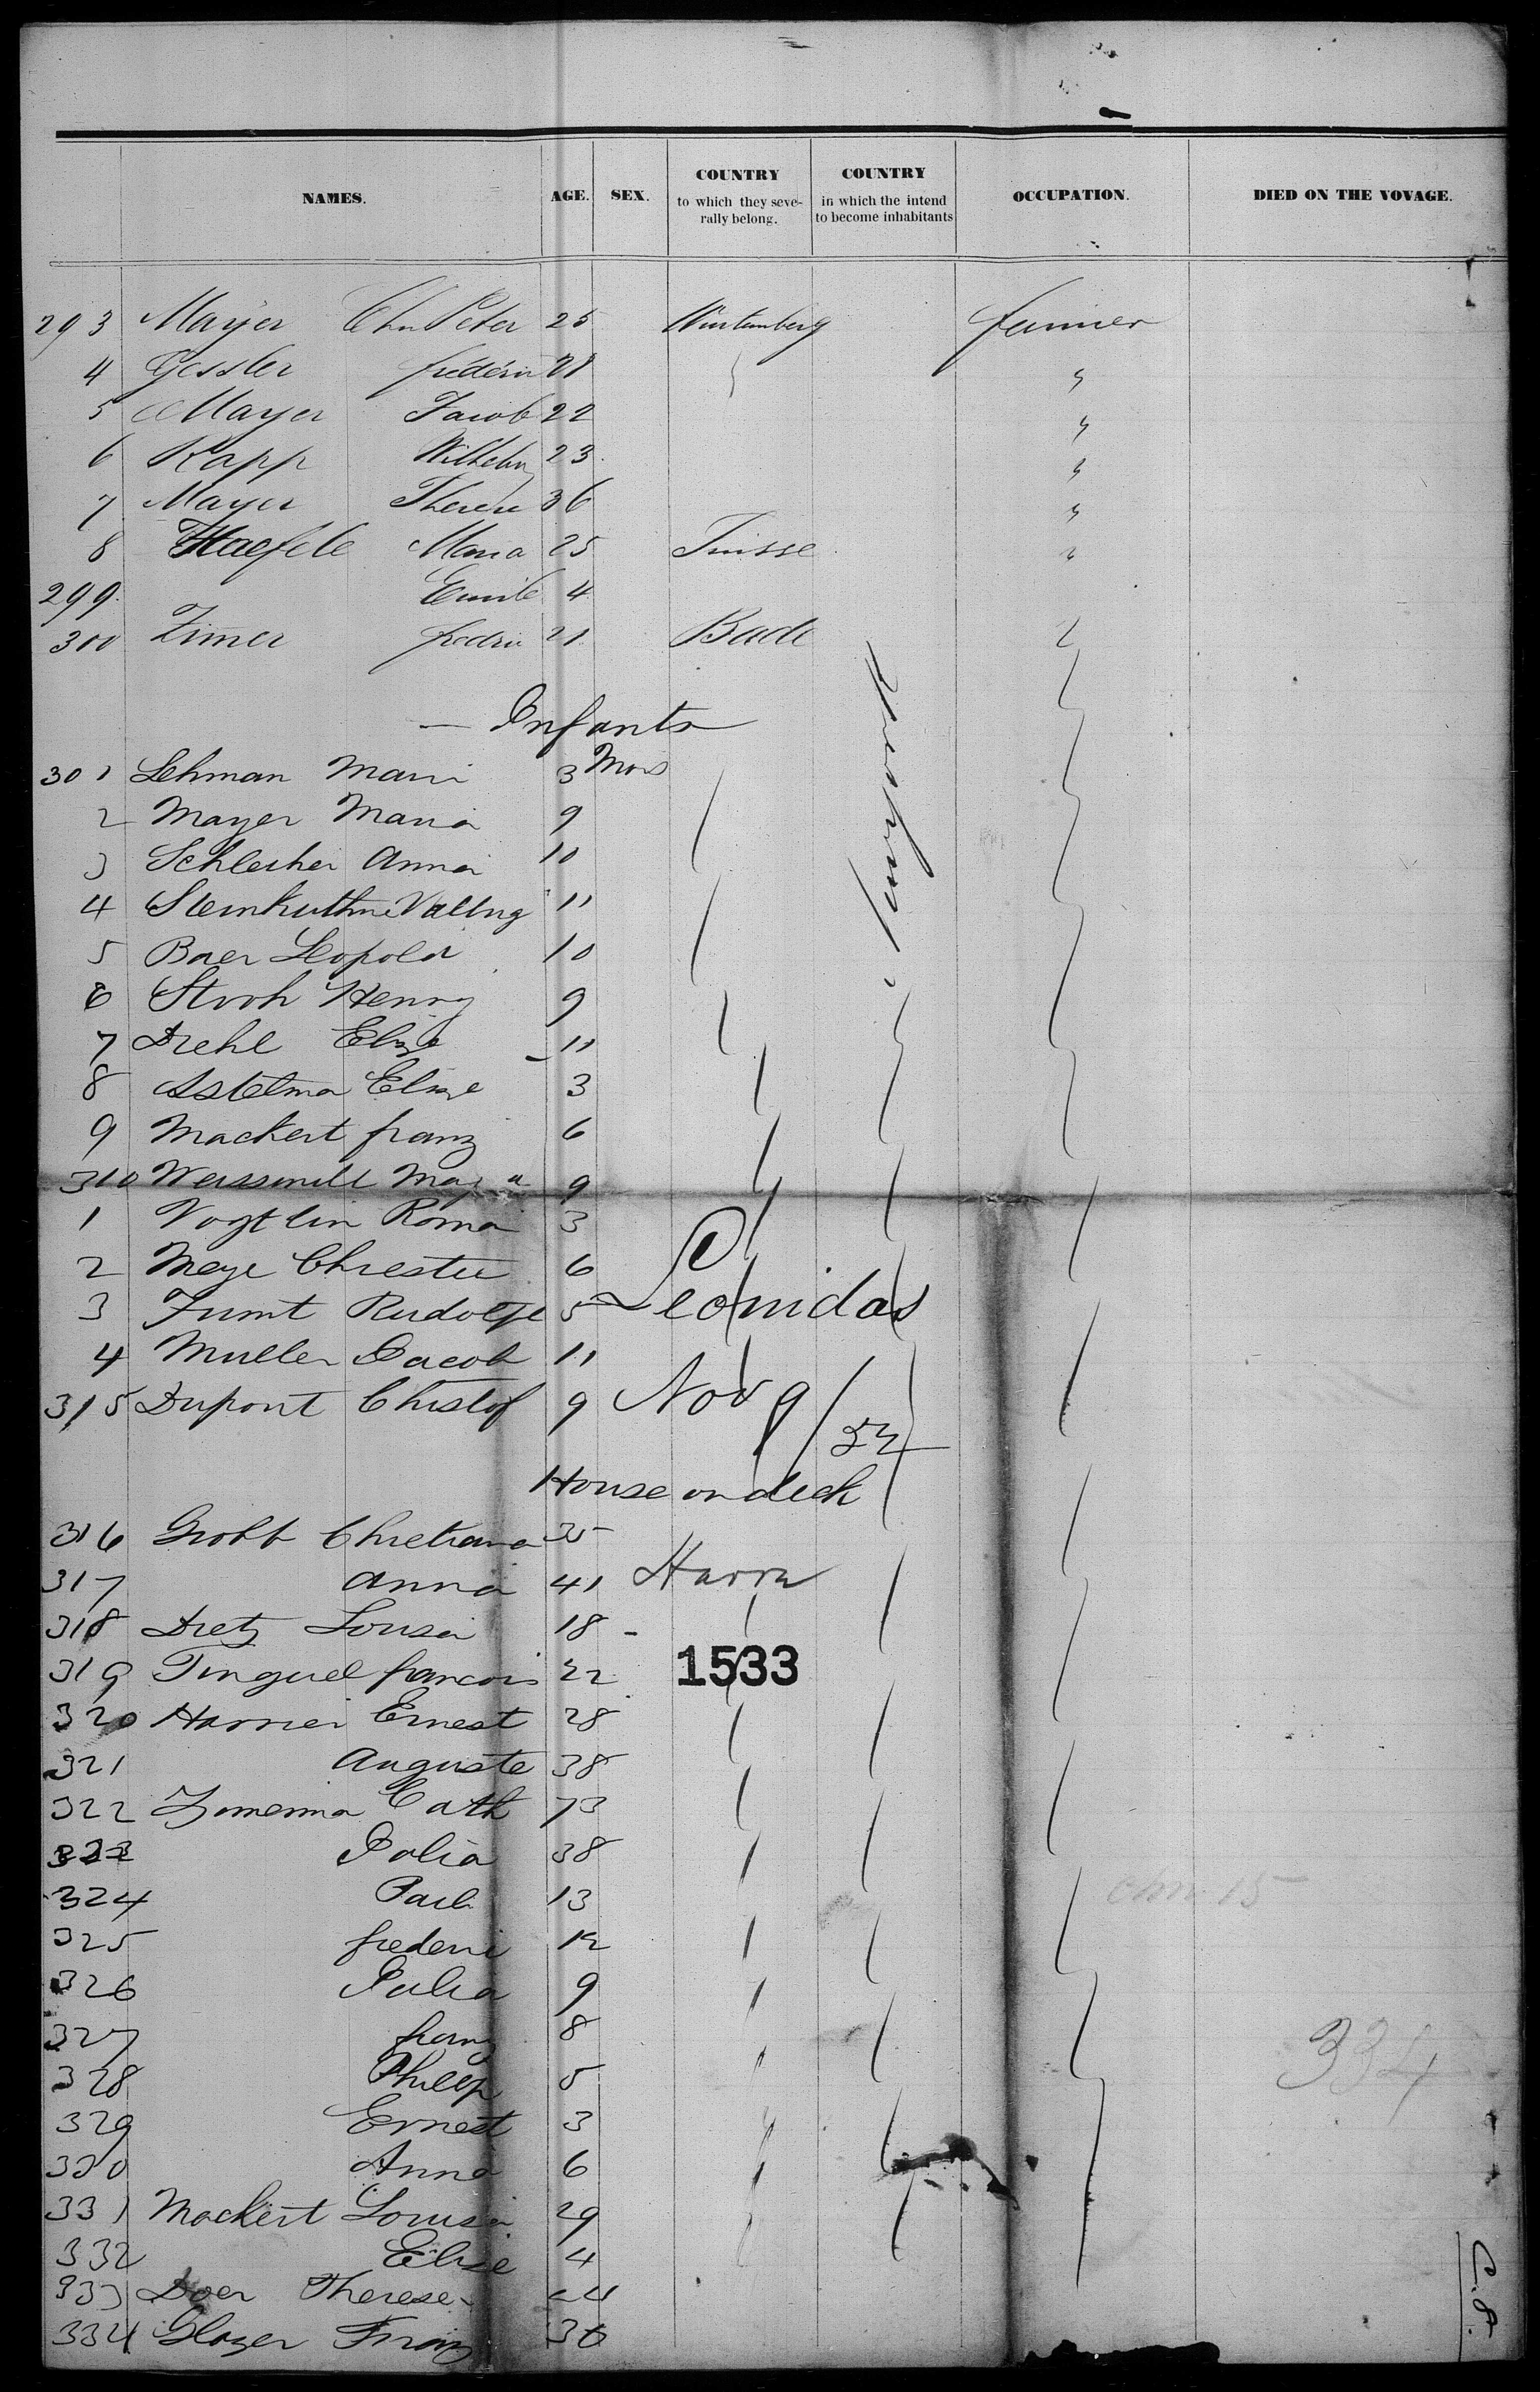 NAMES. AGE. SEX. COUNTRY to which they seve-rally belong. COUNTRY in which the intend to become inhabitants OCCUPATION. DIED ON THE VOYAGE.
293 Mayer Chn Peter 25 Wurtemberg
4 Gessler frédéric
5 Mayer Jacob 22
6 Rapp Wilhelm 23
7 Mayer Therese 36
8 Haefele Maria 25 Suisse
299 Emile 4
300 Zimer fredric 21 Bade
newyork
— Infants
301 Lehman Mari 3 Mos
2 Mayer Maria 9
3 Schleiher Anna 10
4 11
5 Baer Leopold 10
6 Stroh Henry 9
7 Diehl Elize 11
8 Astelma Elise 3
9 Mackert franz 6
310 9
1 Vogtlin Roma 3
2 Meye Christee 6
3 Rudolfe 5 Leonidas
4 Muller Jacob 11
315 Dupont Christof 9 Nov 9/52
House on deck
316 Grobb Chretiana 35
317 Anna 41 Havre
318 Dietz Louisa 18
1533
319 Tinguel francois 22
320 Harrier Ernest 28
321 Auguste 38
322 Zimerma Cath 73
323 Julia 38
324 Paul 13
325 frederic 12
326 Julia 9
327 franz 8
328 Philip 5
329 Ernest 3
330 Anna 6
331 Mackert Louisa 29
332 Elise 4
333 Doer Therese
334 Glaser Franz 36
334
C. 8.